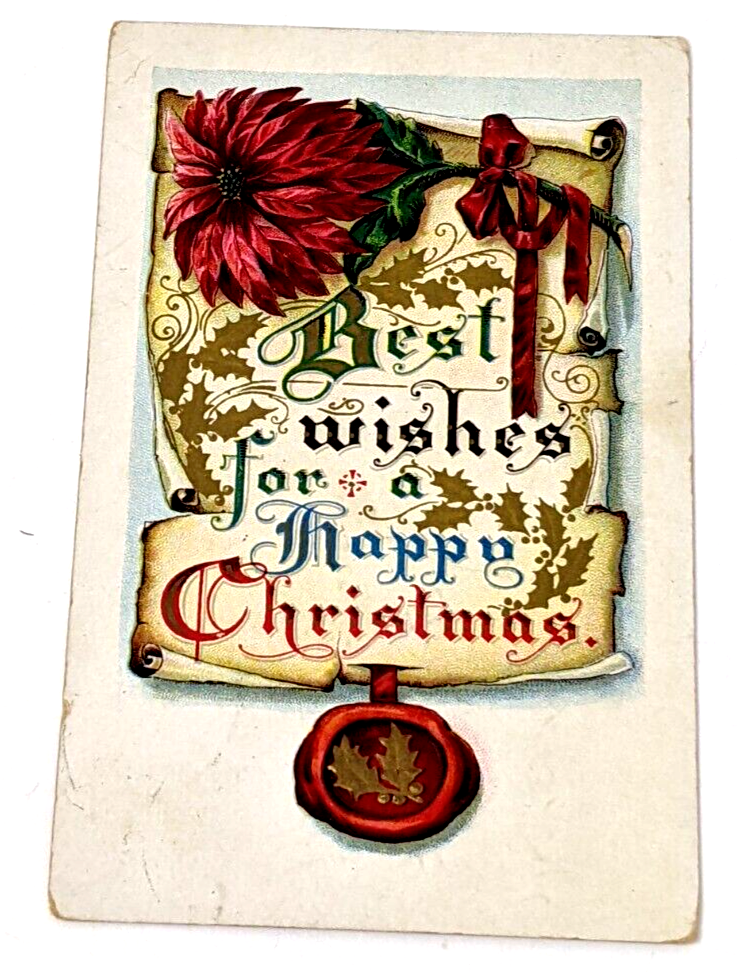 Best
wishes
for a
Happy
Christmas.